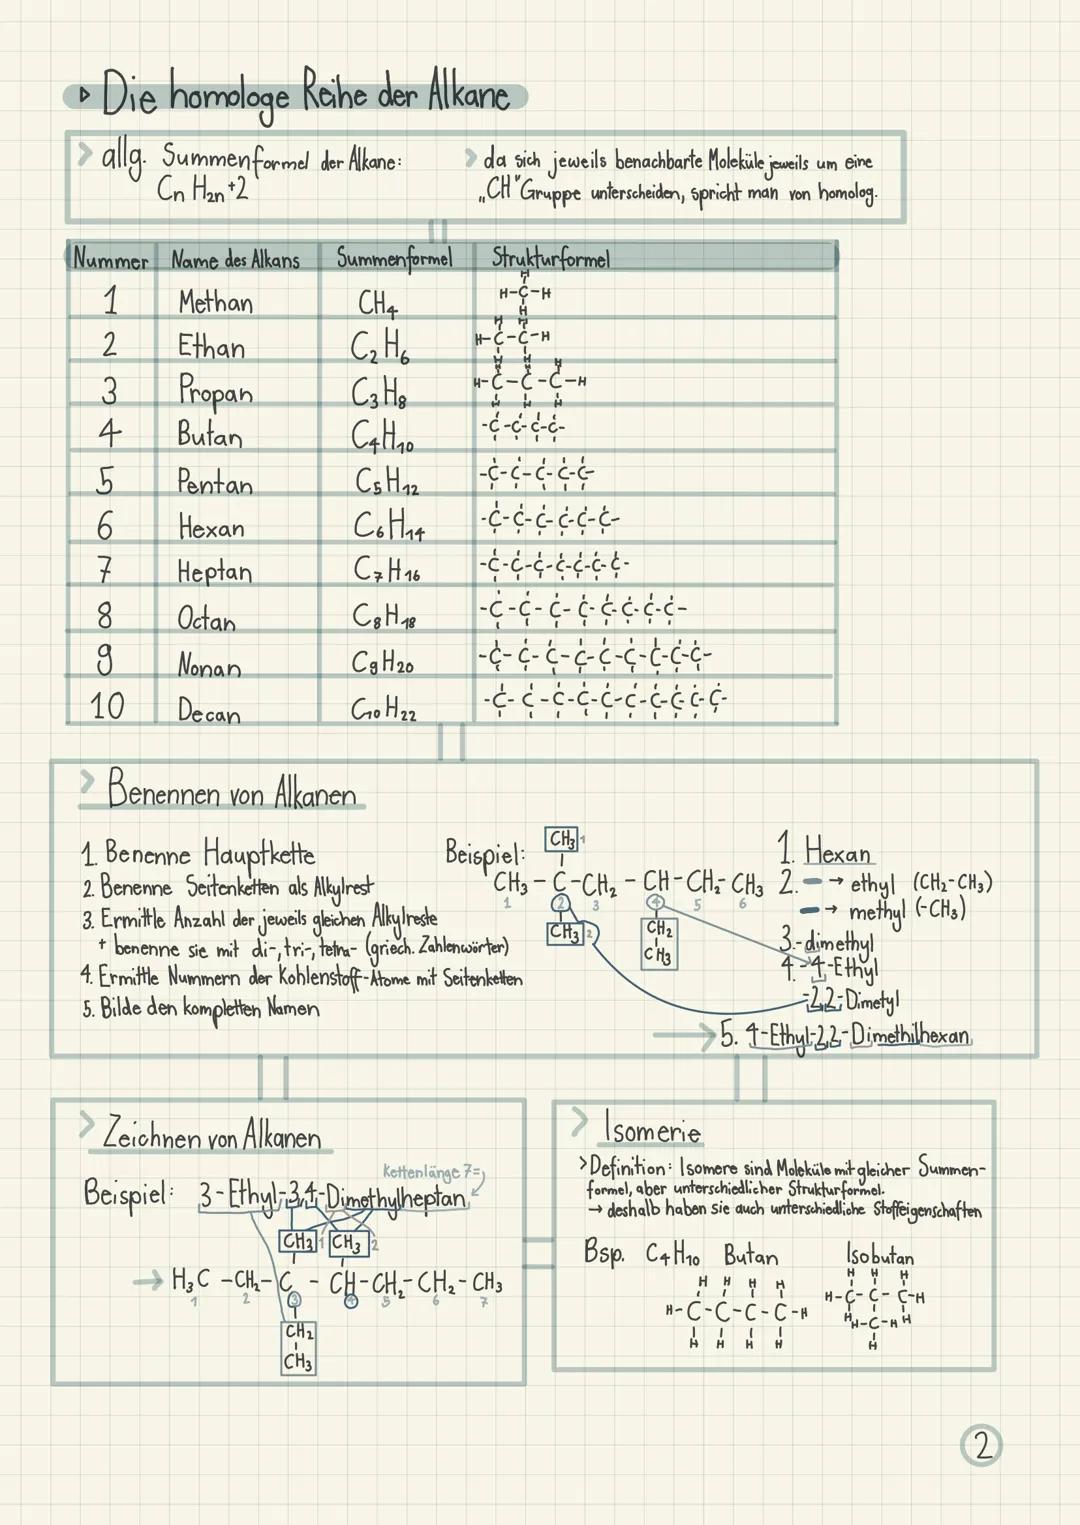 ▹ Die homologe Reihe der Alkane
> allg. Summenformel der Alkane:
Cn H2n+2
> da sich jeweils benachbarte Moleküle jeweils um eine
„CH" Gruppe unterscheiden, spricht man von homolog.
Nummer Name des Alkans Summenformel Strukturformel
1 Methan CH4
2 Ethan C2H6
3 Propan C3H8
4 Butan C4H10
5 Pentan C5H12
6 Hexan C6H14
7 Heptan C7H16
8 Octan C8H18
9 Nonan C9H20
10 Decan C10H22
> Benennen von Alkanen
1. Benenne Hauptkette
2. Benenne Seitenketten als Alkylrest
3. Ermittle Anzahl der jeweils gleichen Alkylreste
+ benenne sie mit di-, tri-, tetra- (griech. Zahlenwörter)
4. Ermittle Nummern der Kohlenstoff-Atome mit Seitenketten
5. Bilde den kompletten Namen
Beispiel:
CH3 1
CH3 - C - CH2 - CH - CH2 - CH3
1 2 3 4 5 6
CH3 2
CH2
CH3
1. Hexan
2. → ethyl (CH2-CH3)
→ methyl (-CH3)
3.-dimethyl
4.-4-Ethyl
-2,2-Dimetyl
→ 5. 4-Ethyl-2,2-Dimethilhexan
> Zeichnen von Alkanen
Kettenlänge 7=
Beispiel: 3-Ethyl-3,4-Dimethylheptan
CH3 1 CH3 2
→ H3C - CH2 - C - CH - CH2 - CH2 - CH3
1 2 3 4 5 6 7
CH2
CH3
> Isomerie
> Definition: Isomere sind Moleküle mit gleicher Summen-
formel, aber unterschiedlicher Strukturformel.
→ deshalb haben sie auch unterschiedliche Stoffeigenschaften
Bsp. C4H10 Butan Isobutan
H H H H
H-C-C-C-C-H
H H H H
H H H
H-C-C-C-H
H H-C-H H
H
2